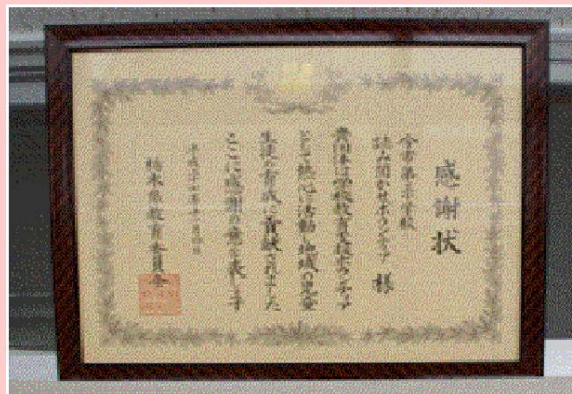 感謝状
今市第三小学校
読み聞かせボランティア 様
貴団体は学校教育支援ボランティア
として熱心に活動し地域の児童
生徒の育成に貢献されました
ここに感謝の意を表します
平成二十
栃木県教育委員会